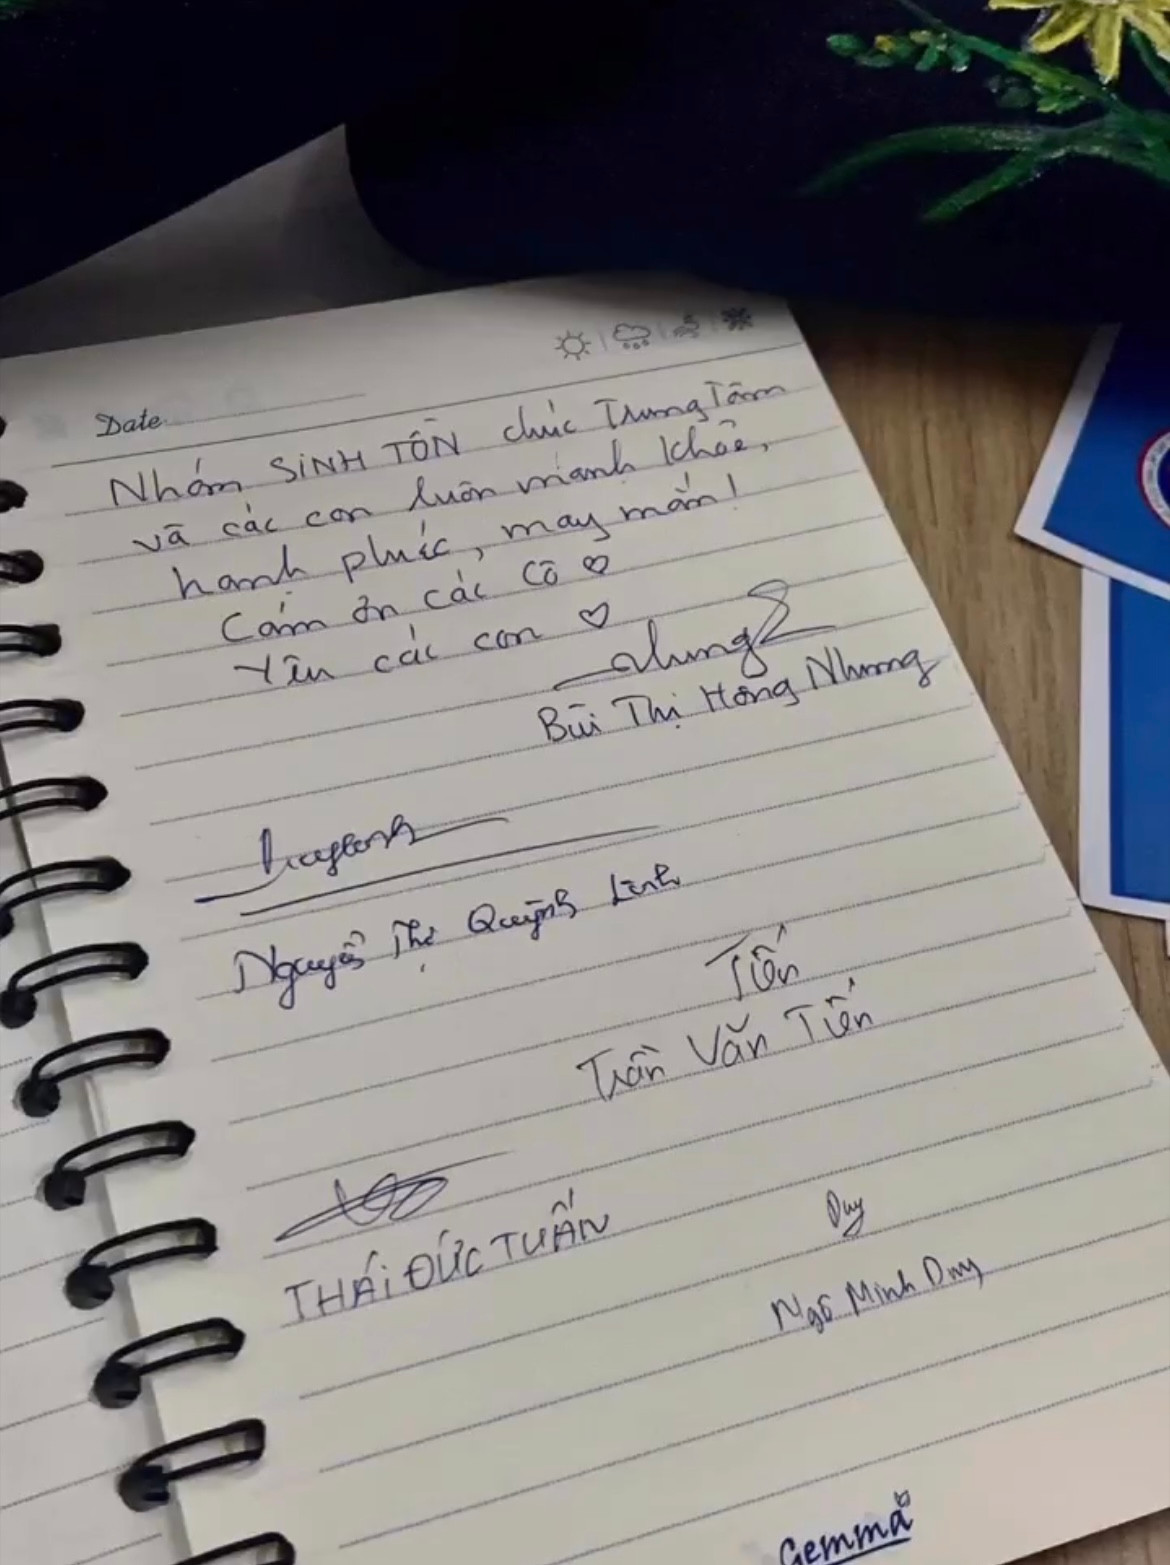 Date
Nhóm SINH TỒN chúc Trung Tâm
và các con luôn mạnh khỏe,
hạnh phúc, may mắn!
Cám ơn các cô ♡
Yêu các con ♡
Nhung
Bùi Thị Hồng Nhung
Nguyễn Thị Quỳnh Linh
Tiến
Trần Văn Tiến
THÁI ĐỨC TUẤN
Duy
Ngô Minh Duy
Gemma